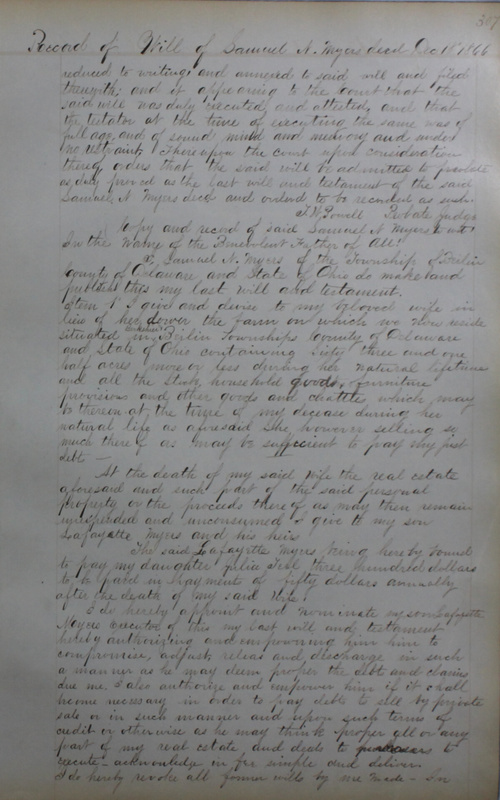 307
Record of Will of Samuel N. Myers decd Dec 18th 1866
reduced to writing and annexed to said will and filed
therewith; and it appearing to the Court that the
said will was duly executed and attested, and that
the testator at the time of executing the same was of
full age, and of sound mind and memory and under
no restraint. Thereupon the court upon consideration
thereof, orders that the said will be admitted to probate
as duly proved as the last will and testament of the said
Samuel N. Myers decd and ordered to be recorded as such.
T. W. Powell Probate judge
Copy and record of said Samuel N Myers to wit:
In the Name of the Benevolent Father of All!
I, Samuel N. Myers of the Township of Berlin
County of Delaware and State of Ohio do make and
publish this my last will and testament.
Item 1st I give and devise to my beloved wife in
lieu of her dower the farm on which we now reside
situated in Berlin Township County of Delaware
and State of Ohio containing Sixty three and one
half acres, more or less during her natural lifetime
and all the Stock, household goods, furniture
provisions and other goods and chattels which may
be thereon at the time of my decease during her
natural life as aforesaid she however selling so
much thereof as may be sufficient to pay my just
debts —
At the death of my said wife the real estate
aforesaid and such part of the said personal
property or the proceeds thereof as may then remain
unexpended and unconsumed I give to my son
Lafayette Myers and his heirs
The said Lafayette Myers being hereby bound
to pay my daughter Julia three hundred dollars
to be paid in payment of fifty dollars annually
after the death of my said Wife.
I do hereby appoint and nominate my son Lafayette
Myers executor of this my last will and testament
hereby authorizing and empowering him him to
compromise, adjust, release and discharge in such
a manner as he may deem proper the debts and claims
due me. I also authorize and empower him if it shall
become necessary in order to pay debts to sell by private
sale or in such manner and upon such terms of
credit or otherwise as he may think proper all or any
part of my real estate and deeds to purchasers to
execute - acknowledge in fee simple and deliver
I do hereby revoke all former wills by me made - In